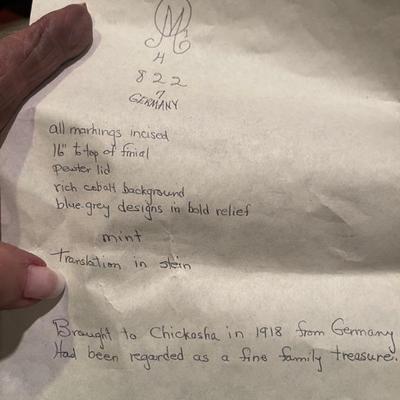 MC
4
822
7
GERMANY
all markings incised
16" to top of finial
pewter lid
rich cobalt background
blue-grey designs in bold relief
mint
Translation in stein
Brought to Chickasha in 1918 from Germany
Had been regarded as a fine family treasure.